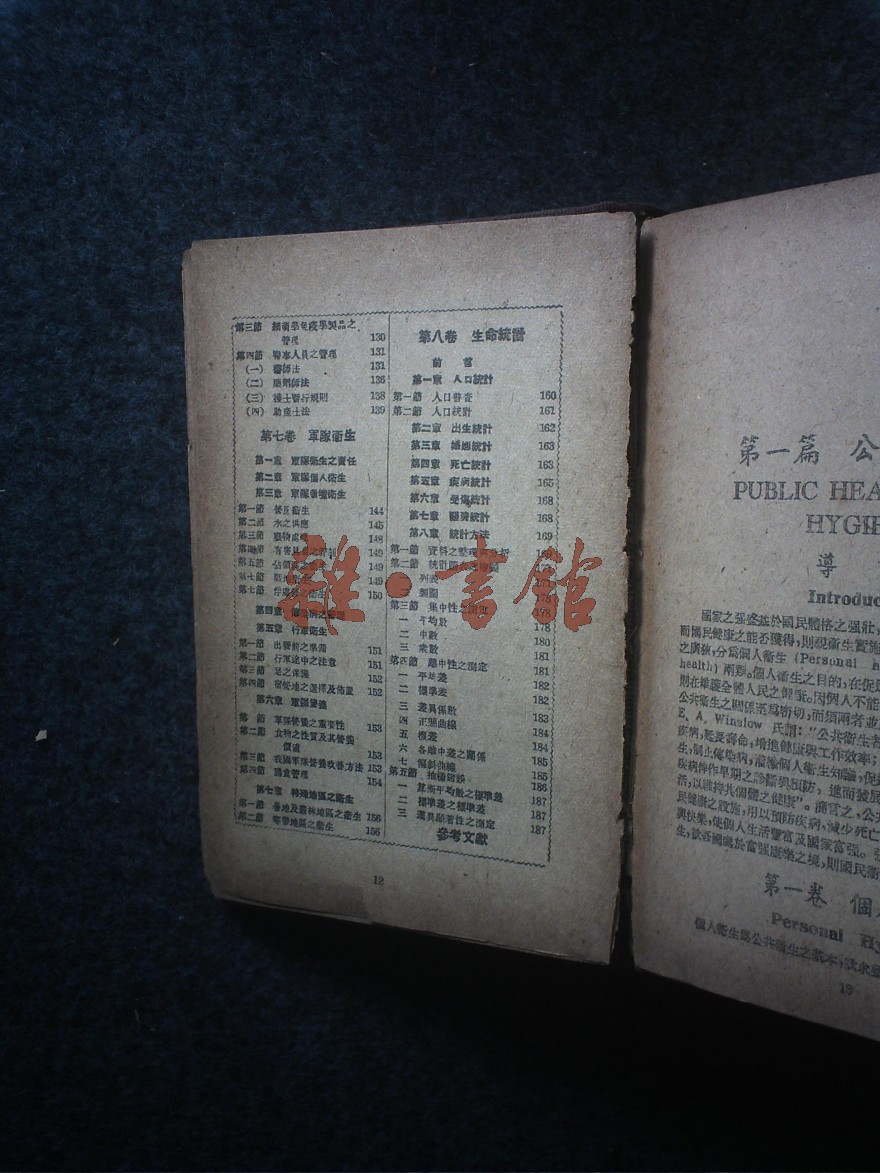 第三節 細菌學免疫學製品之
管理 130
第四節 醫事人員之管理 131
(一) 醫師法 131
(二) 藥劑師法 136
(三) 護士暫行規則 138
(四) 助產士法 139
第七卷 軍隊衞生
第一章 軍隊衞生之責任
第二章 軍隊個人衞生
第三章 軍隊環境衞生
第一節 營房衞生 144
第二節 水之供應 145
第三節 148
第四節 149
第五節 149
第六節 149
第七節 150
第四章
第五章 行軍衞生
第一節 出發前之準備 151
第二節 行軍途中之注意 151
第三節 足之保護 152
第四節 宿營地之選擇及佈置 152
第六章 軍隊營養
第一節 軍隊營養之重要性 153
第二節 食物之性質及其營養
價值 153
第三節 我國軍隊營養改善方法 153
第四節 膳食管理 154
第七章 特殊地區之衞生
第一節 156
第二節 寒帶地區之衞生 156
第八卷 生命統計
前言
第一章 人口統計
第一節 人口普查 160
第二節 人口統計 161
第二章 出生統計 162
第三章 婚姻統計 163
第四章 死亡統計 163
第五章 疾病統計 165
第六章 受傷統計 168
第七章 醫院統計 168
第八章 統計方法 169
第一節 資料之整理
第二節 統計
一 列表
二 製圖
第三節 集中性之測定 178
一 平均數 178
二 中數 180
三 衆數 181
第四節 離中性之測定 181
一 平均差 182
二 標準差 182
三 差異係數 183
四 正態曲線 184
五 機差 184
六 各離中差之關係 185
七 偏斜曲線 185
第五節 抽樣錯誤 186
一 算術平均數之標準差 187
二 標準差之標準差 187
三 差異顯著性之測定 187
參考文獻
12
雜·書館
第一篇 公
PUBLIC HEA
HYGIE
導
Introduc
國家之强盛基於國民體格之强壯,
而國民健康之能否獲得,則視衞生實施
之廣狹,分爲個人衞生 (Personal h
health) 兩類。個人衞生之目的,在促進
則在維護全體人民之健康。因個人不能
公共衞生之關係至爲密切,而須兩者並
E. A. Winslow 氏謂:“公共衞生者
疾病,延長壽命,增進健康與工作效率;
生,制止傳染病,灌漑個人衞生知識,促
疾病得作早期之診斷與預防,進而發展
活,以維持其個體之健康”。簡言之,公共
民健康之設施,用以預防疾病,減少死亡
與快樂,使個人生活豐富及國家富强。
生,欲各國處於富强康樂之境,則國民衞
第一卷 個
Personal Hy
個人衞生爲公共衞生之基本,
13